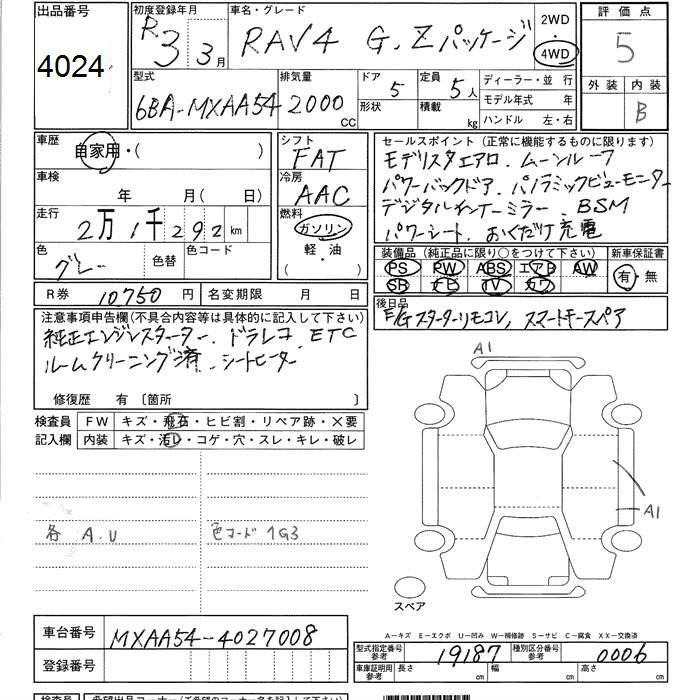 出品番号
4024
初度登録年月
R3 3月
車名・グレード
RAV4 G.Zパッケージ
2WD
4WD
評価点
5
外装 内装
B
型式
6BA-MXAA54
排気量
2000 CC
ドア 5
形状
定員 5人
積載 kg
ディーラー・並 行
モデル年式 年
ハンドル 左・右
車歴
自家用・( )
車検
年 月( 日)
走行
2万1千292km
色
グレー
色替
色コード
シフト
FAT
冷房
AAC
燃料
ガソリン
・
軽・油
( )
セールスポイント(正常に機能するものに限ります)
モデリスタエアロ. ムーンルーフ
パワーバックドア. パノラミックビューモニター
デジタルインナーミラー. BSM
パワーシート. おくだけ充電
装備品(純正品に限り○をつけて下さい)
PS PW ABS エアB AW
SR ナビ TV カワ
新車保証書
有・無
R券 10,750円
名変期限 月 日
後日品
E/Gスターターリモコン, スマートキースペア
注意事項申告欄(不具合内容等は具体的に記入して下さい)
純正エンジンスターター. ドラレコ. ETC
ルームクリーニング済. シートヒーター
修復歴 有〔箇所 〕
検査員
記入欄
FW キズ・飛石・ヒビ割・リペア跡・×要
内装 キズ・汚レ・コゲ・穴・スレ・キレ・破レ
各 A.U
色コード 1G3
A1
A1
スペア
A―キズ E―エクボ U―凹み W―補修跡 S―サビ C―腐食 XX―交換済
車台番号
MXAA54-4027008
登録番号
型式指定番号
参考
19187
種別区分番号
参考
0006
車庫証明用
参考
長さ 幅 高さ
検査員